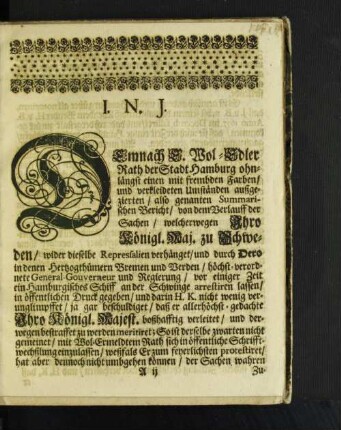 I. N. J.
DEmnach E. Wol-Edler
Rath der Stadt Hamburg ohn-
längst einen mit frembden Farben/
und verkleideten Umständen auffge-
zierten / also genanten Summari-
schen Bericht/ von dem Verlauff der
Sachen / welcherwegen Ihro
Königl. Maj. zu Schwe-
den / wider dieselbe Represalien verhänget/ und durch Dero
in denen Hertzogthümern Bremen und Verden / höchst-verord-
nete General-Gouverneur und Regierung / vor einiger Zeit
ein Hamburgisches Schiff an der Schwinge arrestiren lassen/
in öffentlichen Druck gegeben / und darin H. K. nicht wenig ver-
unglimpffet / ja gar beschuldiget / daß er allerhöchst-gedachte
Ihro Königl. Majest. boßhafftig verleitet / und der-
wegen bestraffet zu werden meritiret: So ist derselbe zwarten nicht
gemeinet / mit Wol-Ermeldtem Rath sich in öffentliche Schrifft-
wechslung einzulassen / weßfals Er zum feyerlichsten protestiret/
hat aber dennoch nicht umbgehen können / der Sachen wahren
A ij Zu-